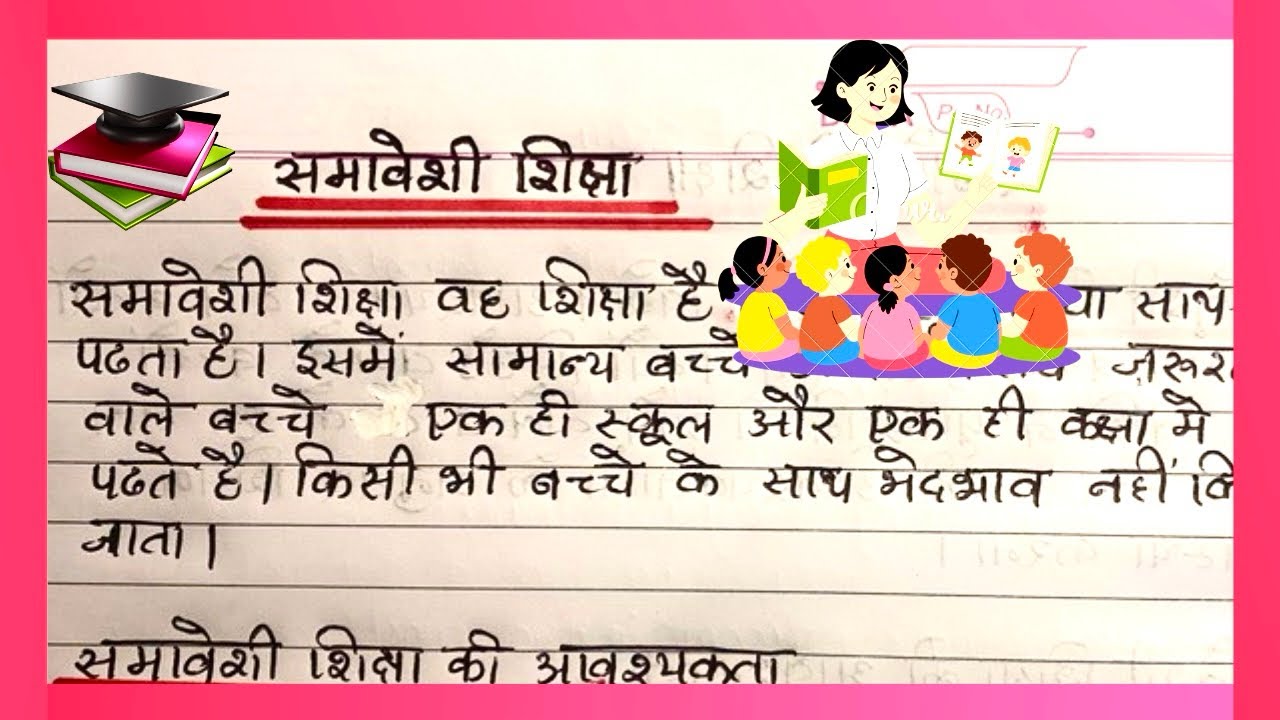 समावेशी शिक्षा
समावेशी शिक्षा वह शिक्षा है या साथ
पढता है। इसमें सामान्य बच्चे
वाले बच्चे एक ही स्कूल और एक ही कक्षा मे
पढते है। किसी भी बच्चे के साथ भेदभाव नहीं
जाता।
समावेशी शिक्षा की आवश्यकता